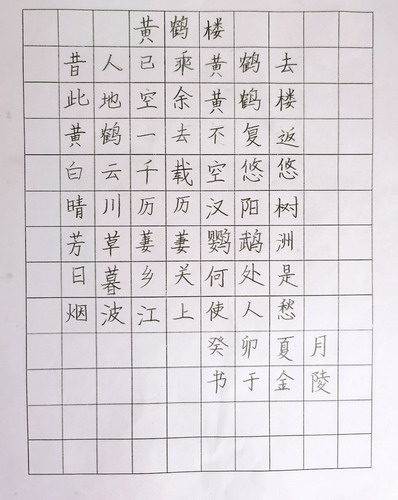 黄鹤楼
昔人已乘黄鹤去
此地空余黄鹤楼
黄鹤一去不复返
白云千载空悠悠
晴川历历汉阳树
芳草萋萋鹦鹉洲
日暮乡关何处是
烟波江上使人愁
癸卯夏月
书于金陵